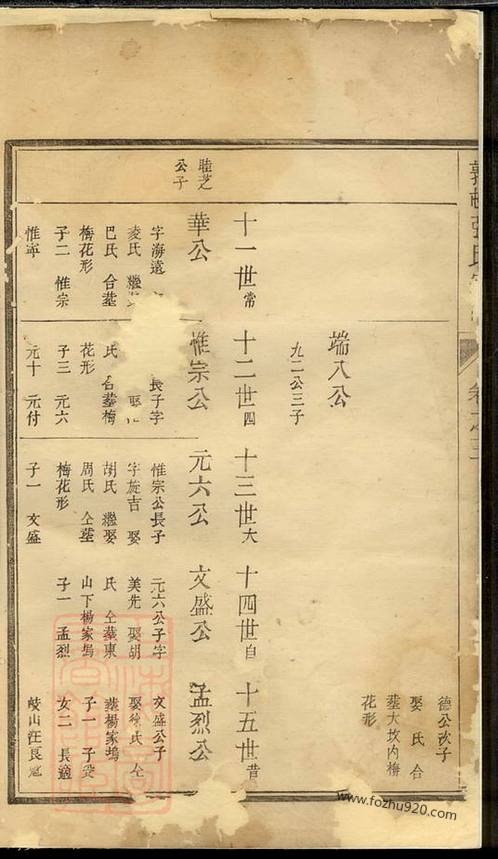 張氏
卷之三
端八公
九二公三子
德公次子
娶 氏 合
塟大坟内梅
花形
十一世常
十二世四
十三世大
十四世自
十五世昔
睦芝
公子
華公
字海遠
凌氏 繼娶
巴氏 合塟
梅花形
子二 惟宗
惟寧
惟宗公
長子字
氏 合塟梅
花形
子三 元六
元十 元付
元六公
惟宗公長子
字旋吉 娶
胡氏 繼娶
周氏 仝塟
梅花形
子一 文盛
文盛公
元六公子字
美先 娶胡
氏 仝塟東
山下楊家塢
子一 孟烈
孟烈公
文盛公子
娶徐氏 仝
塟楊家塢
子一 子
女二 長適
岐山汪良
www.fozhu920.com